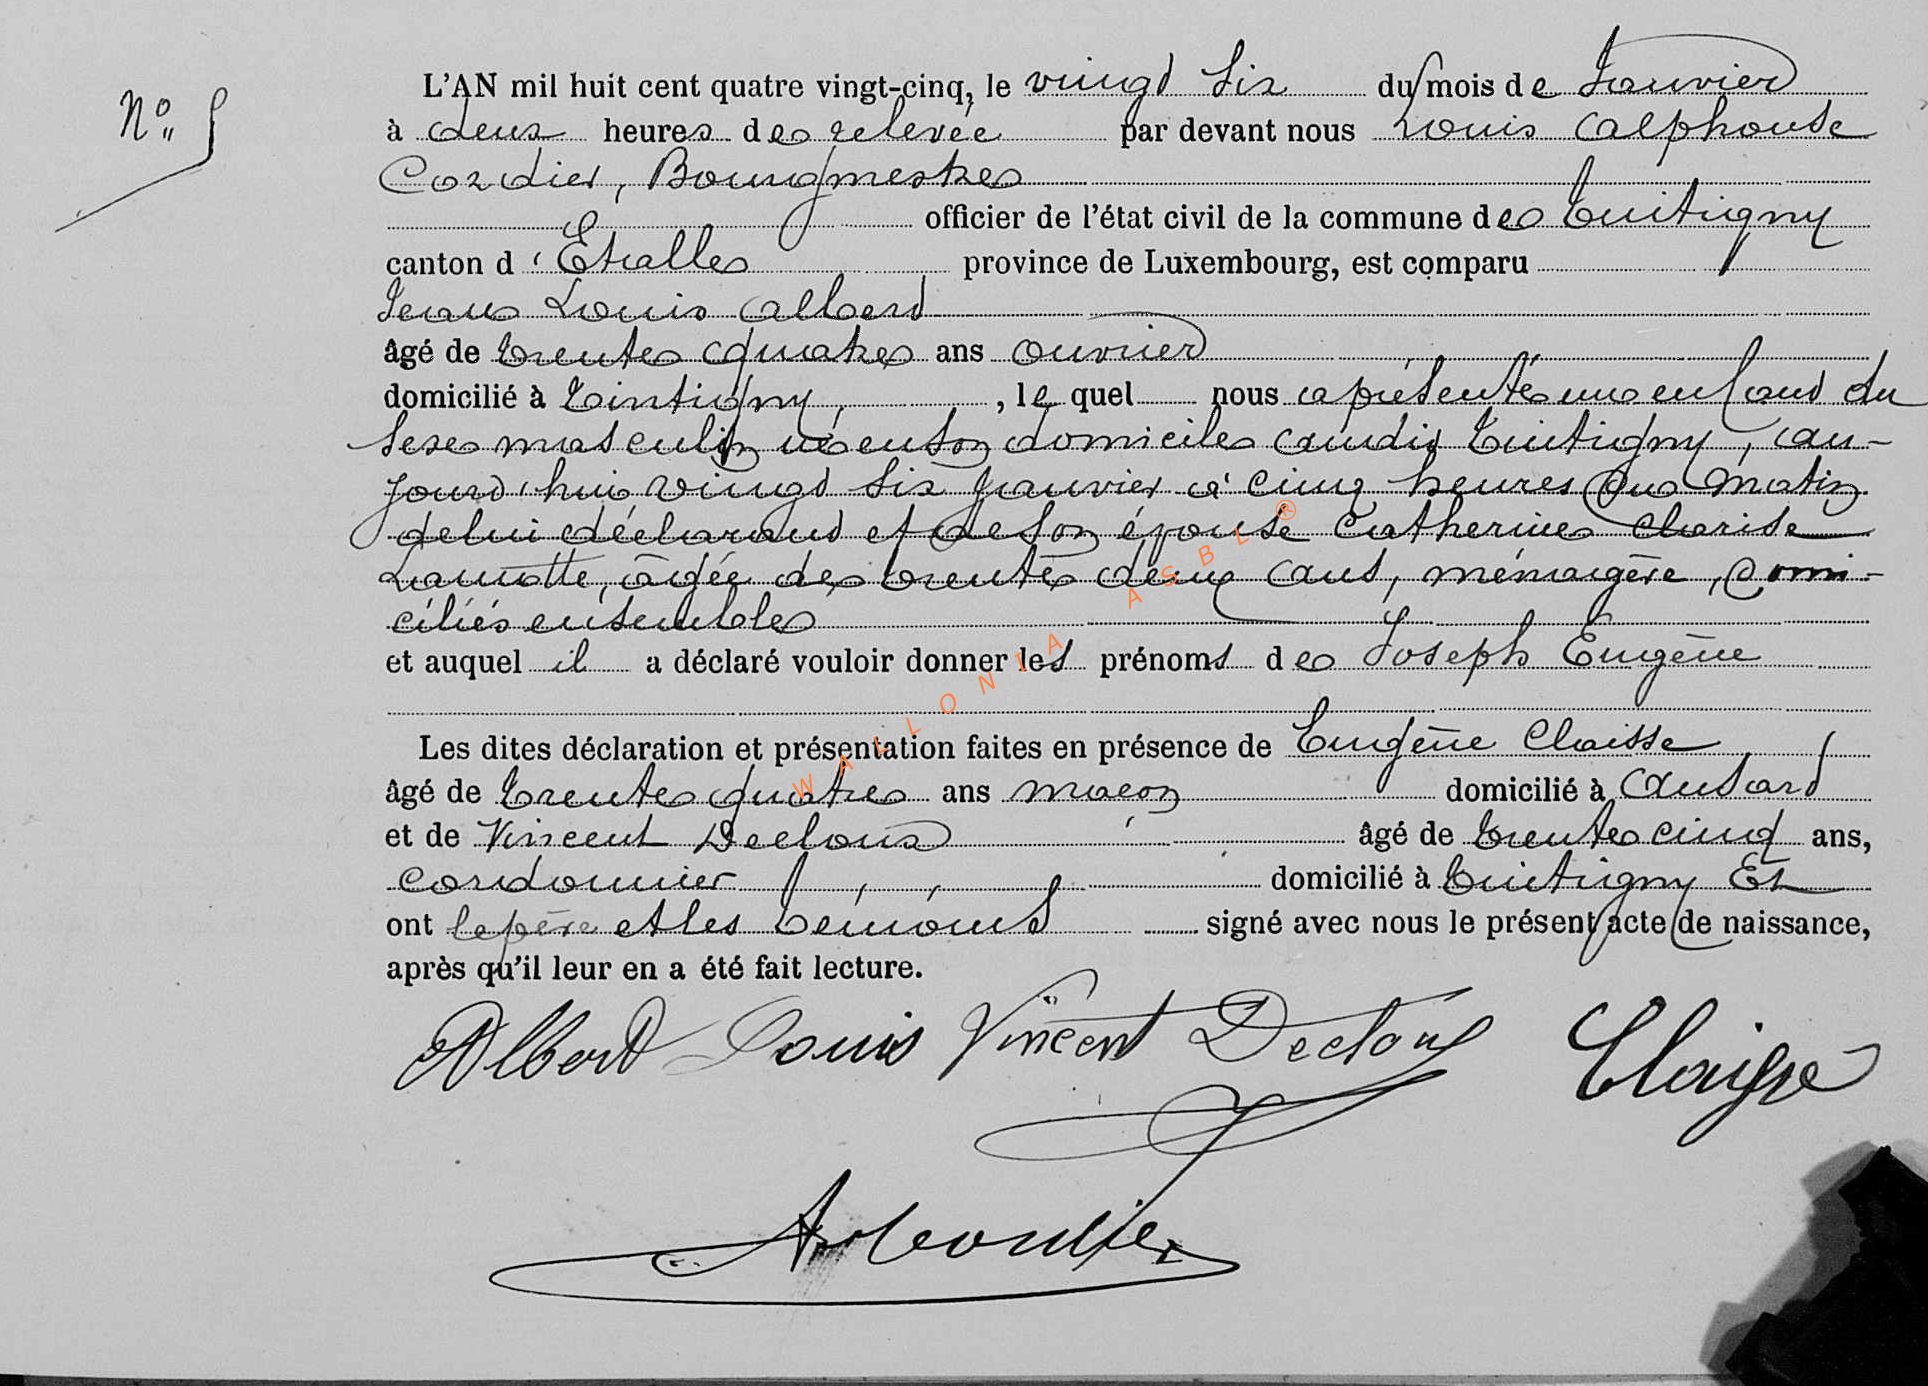 N° 5
L'AN mil huit cent quatre vingt-cinq, le vingt six du mois de Janvier
à deux heures de relevée par devant nous Louis Alphonse
Cordier, Bourgmestre
officier de l'état civil de la commune de Tintigny
canton d'Etalle province de Luxembourg, est comparu
Jean Louis Albert
âgé de trente quatre ans ouvrier
domicilié à Tintigny, le quel nous a présenté un enfant du
sexe masculin né en son domicile audit Tintigny, au-
jourd'hui vingt six janvier à cinq heures du matin
de lui déclarant et de son épouse Catherine Clarise
Lamotte, âgée de trente deux ans, ménagère, domi-
ciliés ensemble
et auquel il a déclaré vouloir donner les prénoms de Joseph Eugène
Les dites déclaration et présentation faites en présence de Eugène Claisse
âgé de trente quatre ans maçon domicilié à Ansart
et de Vincent Decloux âgé de trente cinq ans,
cordonnier domicilié à Tintigny Et
ont le père et les témoins signé avec nous le présent acte de naissance,
après qu'il leur en a été fait lecture.
Albert Louis Vincent Decloux Claisse
Cordier
WALLONIA ASBL ®